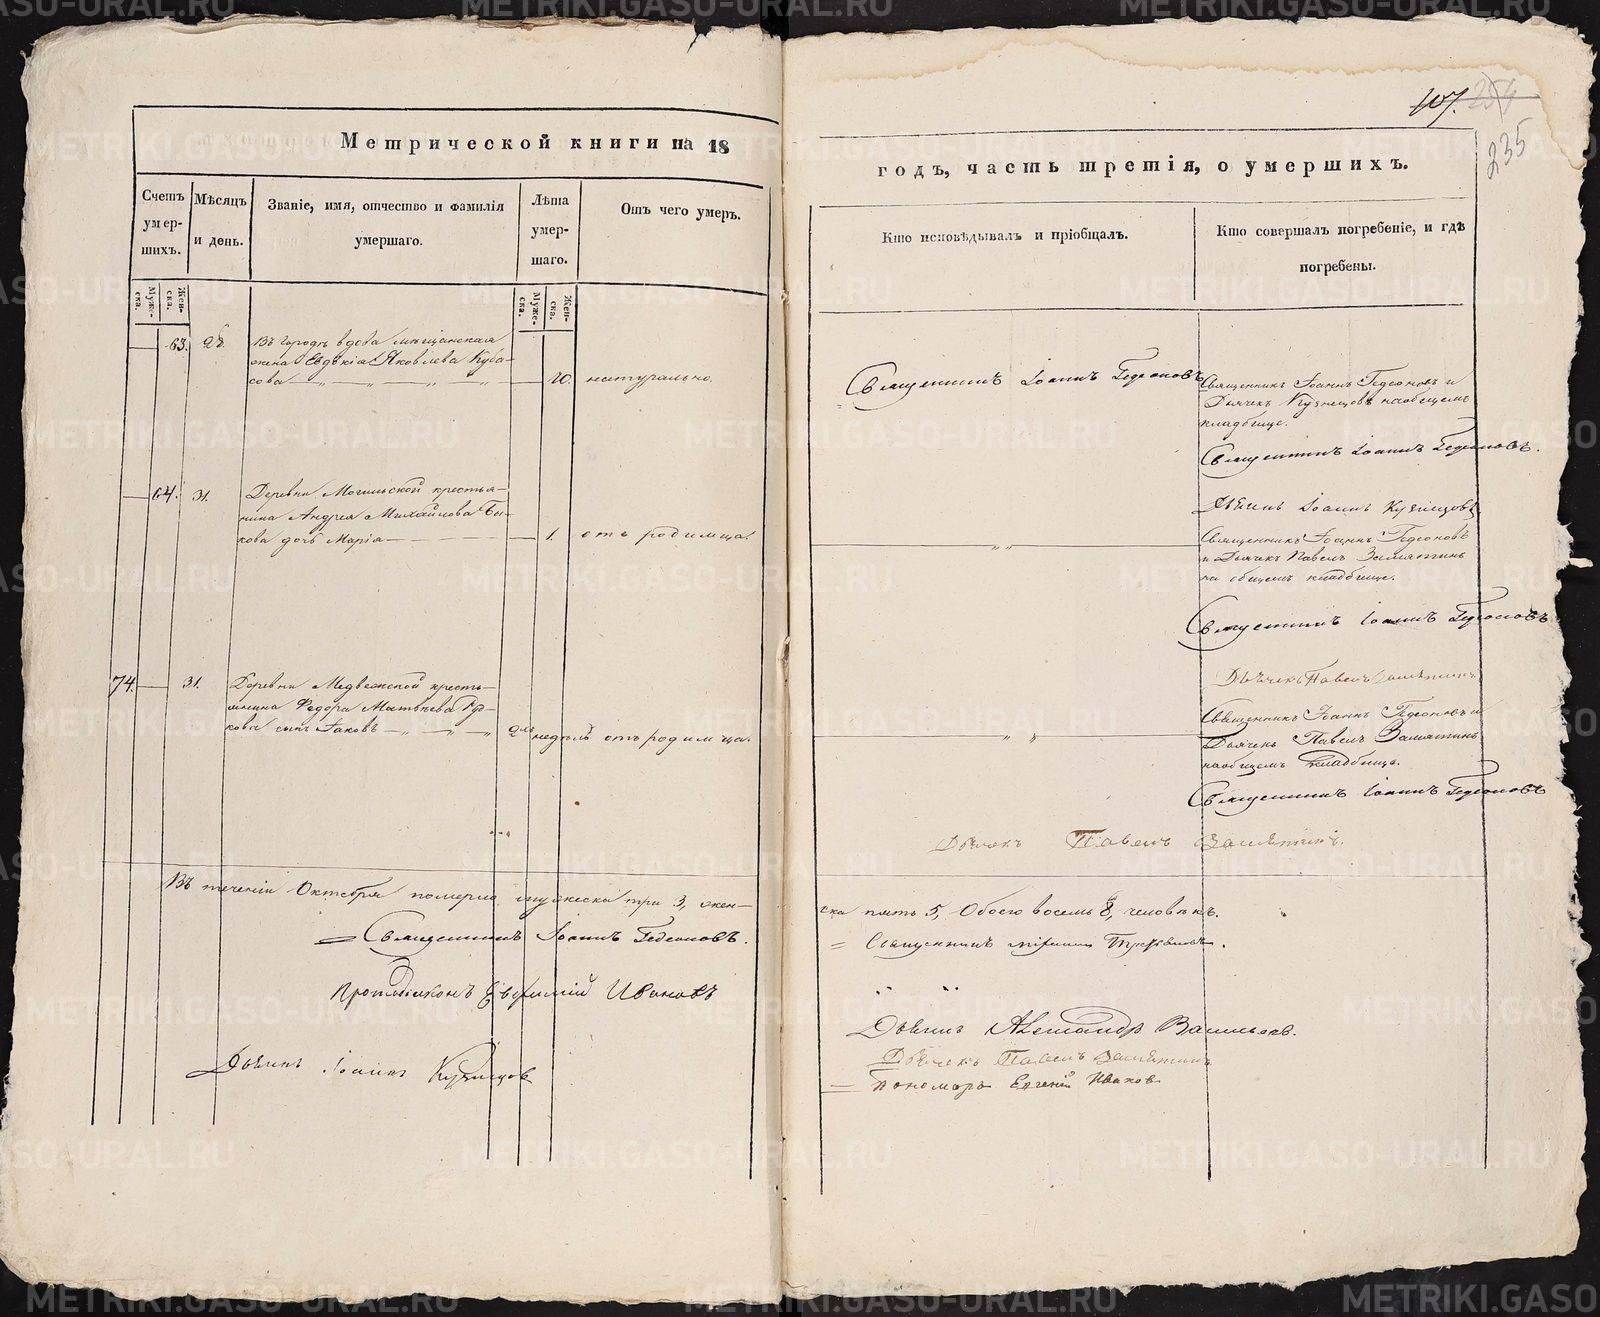 Метрической книги на 18
Счетъ умершихъ.
Мѣсяцъ и день.
Званіе, имя, отчество и фамилія умершаго.
Лѣта умершаго.
Отъ чего умеръ.
Муже-ска.
Жен-ска.
Муже-ска.
Жен-ска.
63. 28. Въ городѣ вдова мѣщанская
жена Евдокія Яковлева Куба-
сова 70. натурально.
64. 31. Деревни Могильской крестья-
нина Андрея Михайлова Бы-
кова дочь Марія 1. отъ родимца.
74. 31. Деревни Медвежской кресть-
янина Федора Матвѣева
сынъ Іаковъ 2хъ недѣль отъ родимца.
Въ теченіи Октября померло мужеска три 3, жен-
Священникъ Іоаннъ Гедеоновъ.
Протодіаконъ Евфимій Ивановъ
Дьячекъ Іоаннъ Кузнецов
107. 254
235
годъ, часть третія, о умершихъ.
Кто исповѣдывалъ и пріобщалъ.
Кто совершалъ погребеніе, и гдѣ погребены.
Священникъ Іоаннъ Гедеоновъ
Священникъ Іоаннъ Гедеоновъ и
Дьячекъ Кузнецовъ на общемъ
кладбище.
Священникъ Іоаннъ Гедеоновъ.
Дьячекъ Іоаннъ Кузнецовъ
Священникъ Іоаннъ Гедеоновъ
и Дьячекъ Павелъ Замятинъ
на общемъ кладбище.
Священникъ Іоаннъ Гедеоновъ
Дьячекъ Павелъ Замятинъ
Священникъ Іоаннъ Гедеоновъ и
Дьячекъ Павелъ Замятинъ
на общемъ кладбище.
Священникъ Іоаннъ Гедеоновъ
Дьячекъ Павелъ Замятинъ.
ска пять 5, Обоего восемь 8, человѣкъ.
Священникъ
Дьячекъ Александръ Васильевъ.
Дьячекъ Павелъ Замятинъ
Пономарь Евгеній Ивановъ
METRIKI.GASO-URAL.RU